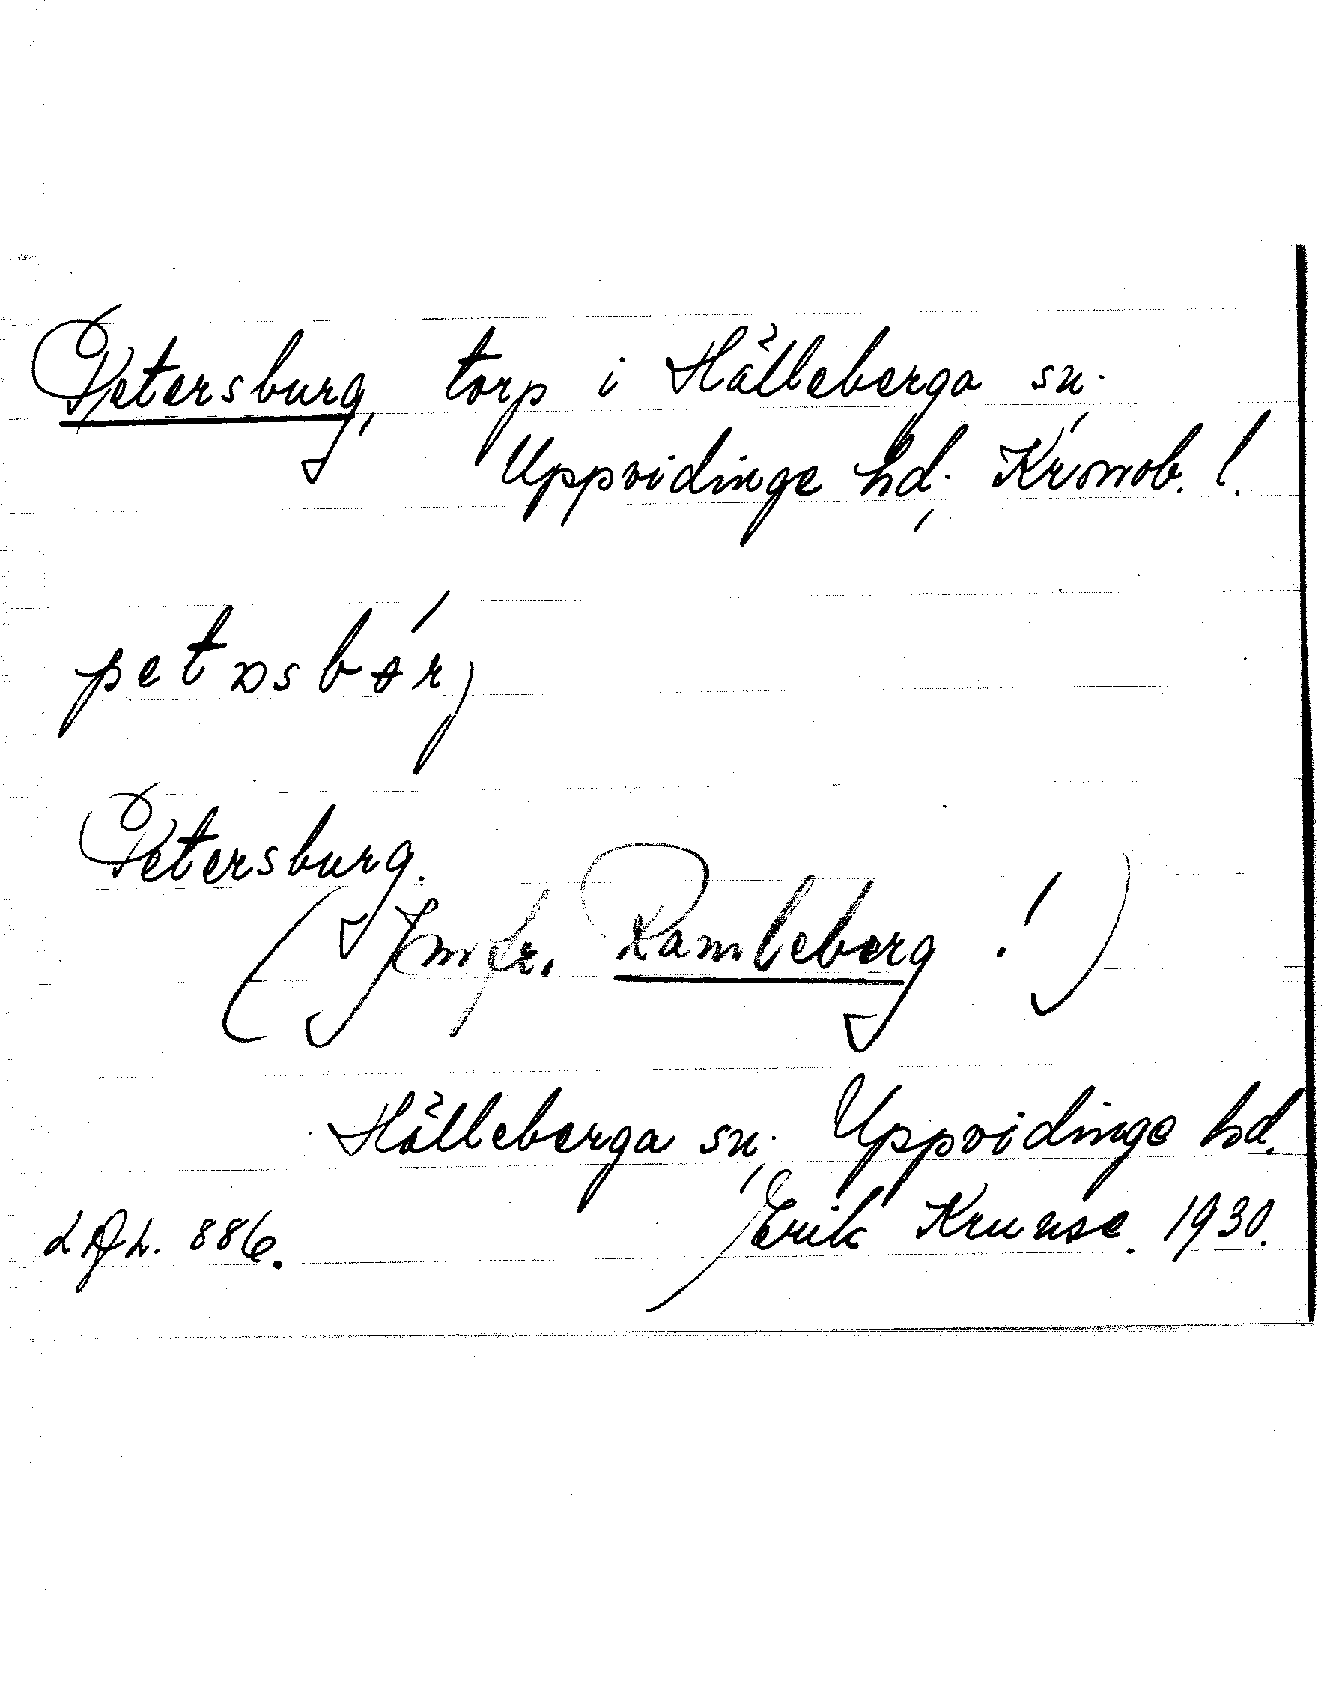 Petersburg, torp i Hälleberga sn.
Uppvidinge hd, Kronob. l.
Petersburg.
(Jmfr. Ramleberg !)
Hälleberga sn, Uppvidinge hd.
886. Erik Kruuse. 1930.